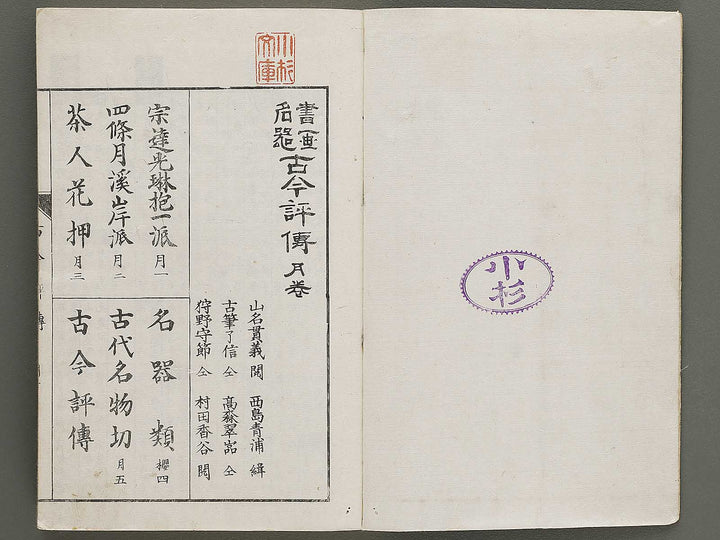 小杉
小杉
文庫
書画
名器
古今評傳 月巻
山名貫義 閲 西島青浦 緝
古筆了信 仝 高森翠嵒 仝
狩野守節 仝 村田香谷 閲
宗達光琳抱一派 月一
四條月溪岸派 月二
茶人花押 月三
名器類 櫻四
古代名物切 月五
古今評傳